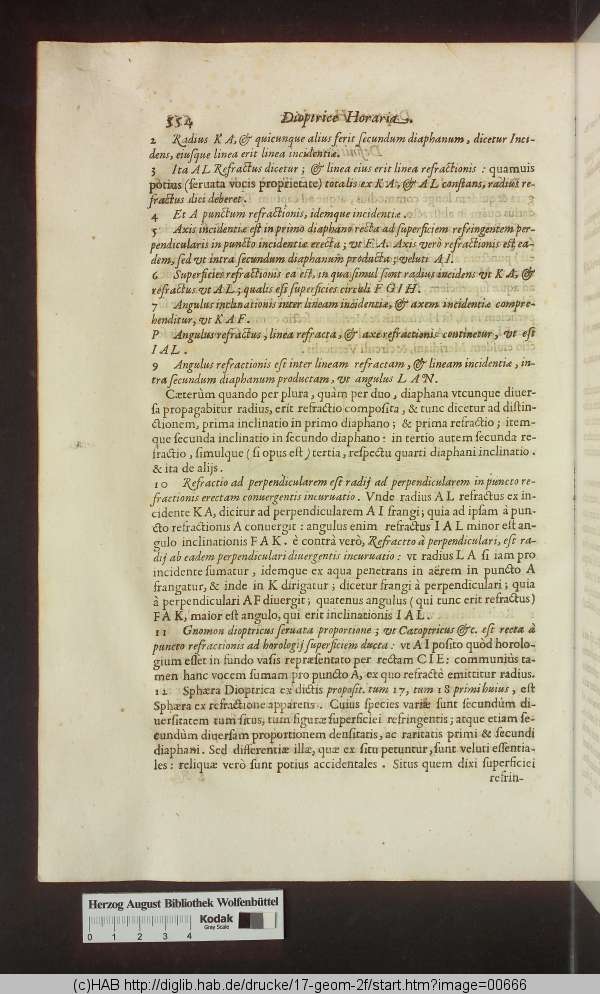 554 Dioptrice Horaria.
2 Radius K A, & quicunque alius ferit secundum diaphanum, dicetur Inci-
dens, eiusque linea erit linea incidentiæ.
3 Ita A L Refractus dicetur; & linea eius erit linea refractionis: quamuis
potius (seruata vocis proprietate) totalis ex K A, & A L constans, radius re-
fractus dici deberet.
4 Et A punctum refractionis, idemque incidentiæ.
5 Axis incidentiæ est in primo diaphano recta ad superficiem refringentem per-
pendicularis in puncto incidentiæ erecta; vt F A. Axis verò refractionis est ea-
dem, sed vt intra secundum diaphanum producta; veluti A I.
6 Superficies refractionis ea est, in qua simul sunt radius incidens vt K A, &
refractus vt A L; qualis est superficies circuli F G I H.
7 Angulus inclinationis inter lineam incidentiæ, & axem incidentiæ compre-
henditur, vt K A F.
P Angulus refractus, linea refracta, & axe refractionis continetur, vt est
I A L.
9 Angulus refractionis est inter lineam refractam, & lineam incidentiæ, in-
tra secundum diaphanum productam, vt angulus L A N.
Cæterùm quando per plura, quàm per duo, diaphana vtcunque diuer-
sa propagabitur radius, erit refractio composita, & tunc dicetur ad distin-
ctionem, prima inclinatio in primo diaphano; & prima refractio; item-
que secunda inclinatio in secundo diaphano: in tertio autem secunda re-
fractio, simulque (si opus est) tertia, respectu quarti diaphani inclinatio.
& ita de alijs.
10 Refractio ad perpendicularem est radij ad perpendicularem in puncto re-
fractionis erectam conuergentis incuruatio. Vnde radius A L refractus ex in-
cidente K A, dicitur ad perpendicularem A I frangi; quia ad ipsam à pun-
cto refractionis A conuergit: angulus enim refractus I A L minor est an-
gulo inclinationis F A K. è contrà verò, Refractio à perpendiculari, est ra-
dij ab eadem perpendiculari diuergentis incuruatio: vt radius L A si iam pro
incidente sumatur, idemque ex aqua penetrans in aërem in puncto A
frangatur, & inde in K dirigatur; dicetur frangi à perpendiculari; quia
à perpendiculari A F diuergit; quatenus angulus (qui tunc erit refractus)
F A K, maior est angulo, qui erit inclinationis I A L.
11 Gnomon dioptricus seruata proportione; vt Catoptricus &c. est recta à
puncto refractionis ad horologij superficiem ducta: vt A I posito quòd horolo-
gium esset in fundo vasis repræsentato per rectam C I E: communiùs ta-
men hanc vocem sumam pro puncto A, ex quo refractè emittitur radius.
12 Sphæra Dioptrica ex dictis proposit. tum 17, tum 18 primi huius, est
Sphæra ex refractione apparens. Cuius species variæ sunt secundùm di-
uersitatem tum situs, tum figuræ superficiei refringentis; atque etiam se-
cundùm diuersam proportionem densitatis, ac raritatis primi & secundi
diaphani. Sed differentiæ illæ, quæ ex situ petuntur, sunt veluti essentia-
les: reliquæ verò sunt potius accidentales. Situs quem dixi superficiei
refrin-
Herzog August Bibliothek Wolfenbüttel
0 1 2 3 4
Kodak
Grey Scale
(c)HAB http://diglib.hab.de/drucke/17-geom-2f/start.htm?image=00666